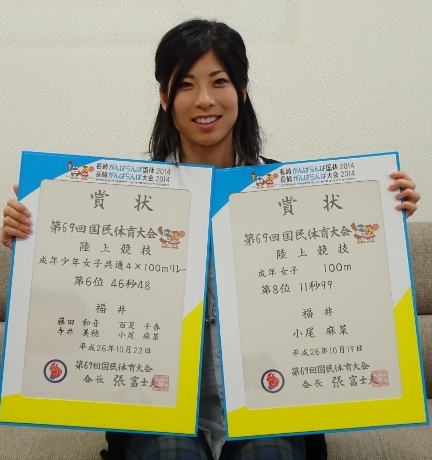 長崎がんばらんば国体2014
長崎がんばらんば大会2014
賞状
第69回国民体育大会
陸上競技
成年少年女子共通4×100mリレー
第6位 46秒48
福井
藤田 和音 百足 千香
寺井 美穂 小尾 麻菜
平成26年10月22日
第69回国民体育大会
会長 張富士夫
長崎がんばらんば国体2014
長崎がんばらんば大会2014
賞状
第69回国民体育大会
陸上競技
成年女子 100m
第8位 11秒99
福井
小尾 麻菜
平成26年10月19日
第69回国民体育大会
会長 張富士夫